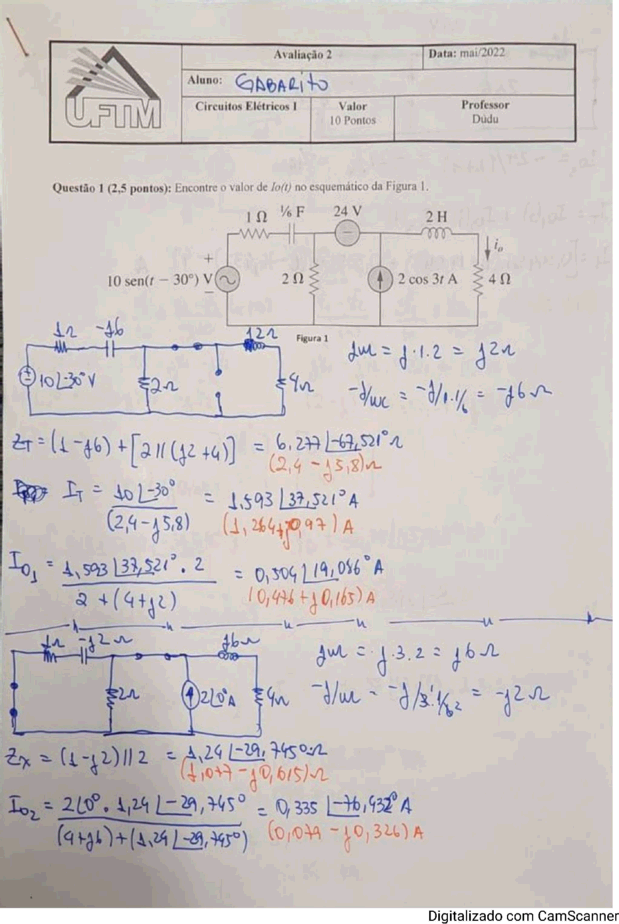 Avaliação 2
Data: mai/2022
UFTM
Aluno: GABARITO
Circuitos Elétricos I
Valor
10 Pontos
Professor
Dudu
Questão 1 (2,5 pontos): Encontre o valor de Io(t) no esquemático da Figura 1.
1 Ω 1/6 F 24 V 2 H
io
10 sen(t − 30°) V 2 Ω 2 cos 3t A 4 Ω
Figura 1
1Ω -j6 j2Ω
10∠-30° V 2Ω 4Ω
jωL = j.1.2 = j2Ω
-j/ωC = -j/1.1/6 = -j6Ω
ZT = (1-j6) + [2//(j2+4)] = 6,277∠-67,521° Ω
(2,4 - j5,8)Ω
IT = 10∠-30° / (2,4-j5,8) = 1,593∠37,521° A
(1,264+j0,97) A
Io1 = 1,593∠37,521° . 2 / 2+(4+j2) = 0,504∠19,086° A
(0,476 + j0,165) A
1Ω -j2Ω j6Ω
2Ω 2∠0°A 4Ω
jωL = j.3.2 = j6Ω
-j/ωC = -j/3.1/6 = -j2Ω
Zx = (1-j2)//2 = 1,24∠-29,745° Ω
(1,077 - j0,615)Ω
Io2 = 2∠0° . 1,24∠-29,745° / (4+j6)+(1,24∠-29,745°) = 0,335∠-76,432° A
(0,079 - j0,326) A
Digitalizado com CamScanner